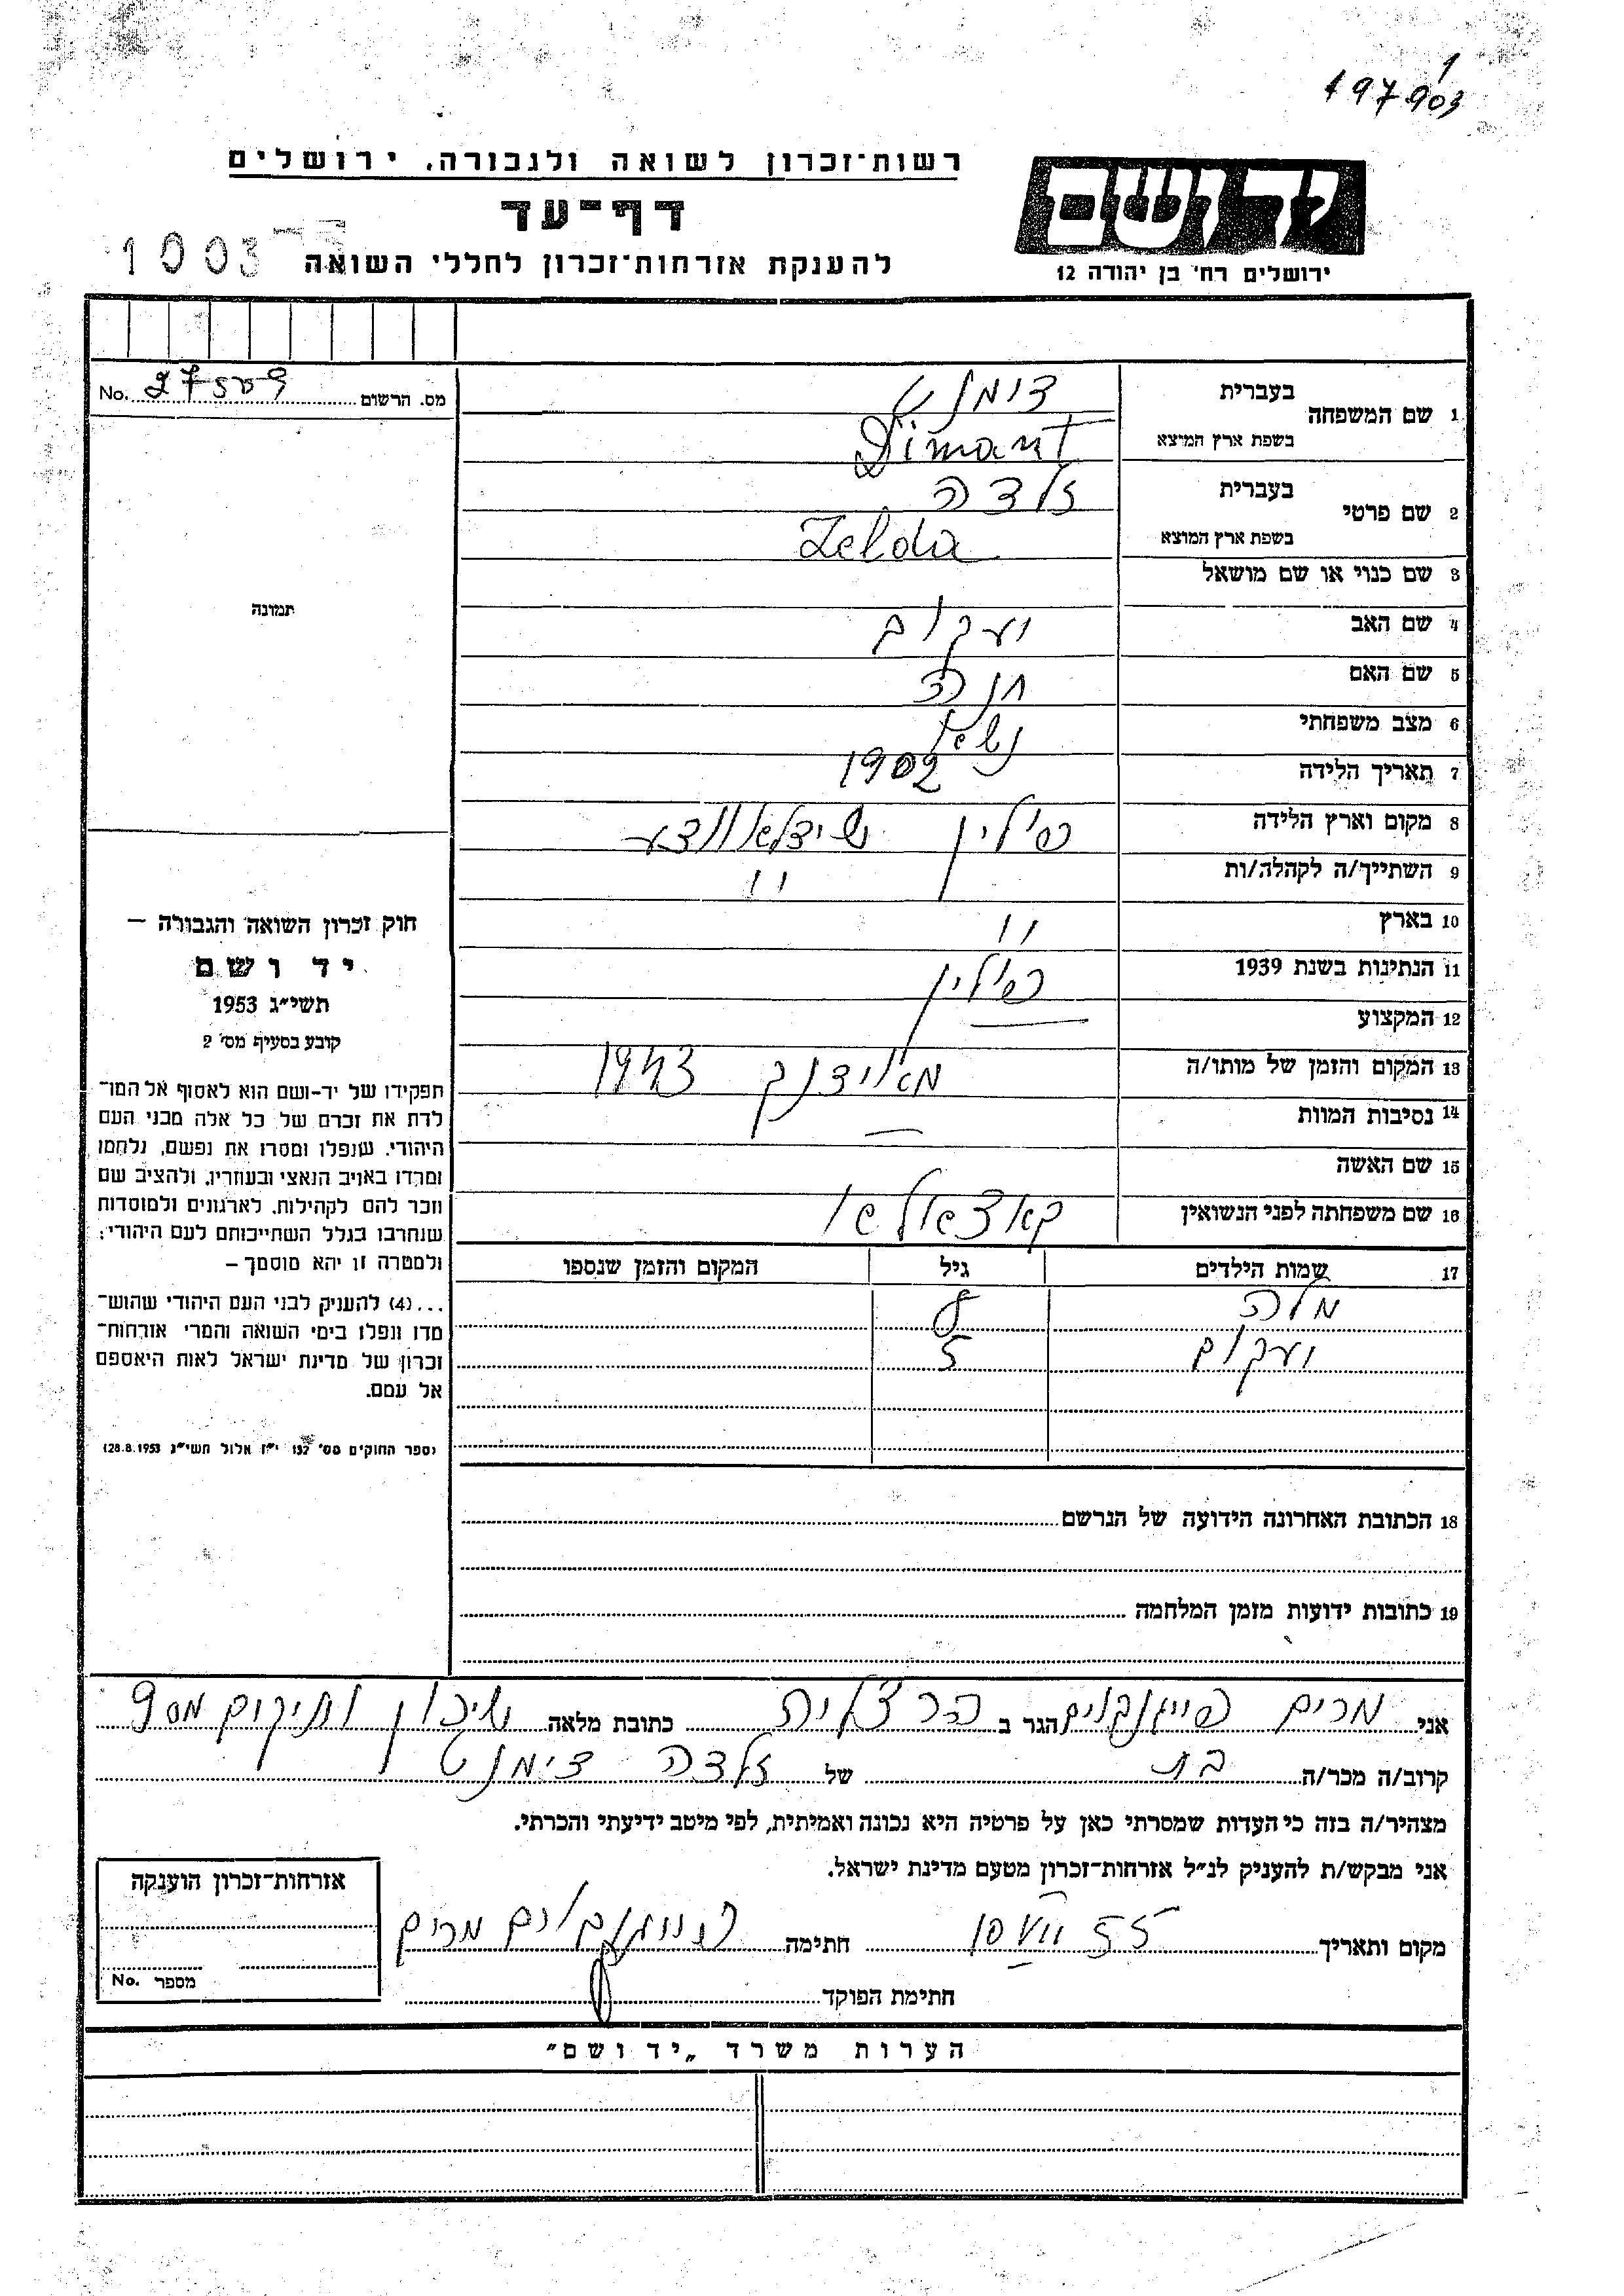 197903
1
רשות־זכרון לשואה ולגבורה, ירושלים
דף־עד
להענקת אזרחות־זכרון לחללי השואה
1003
יד ושם
ירושלים רח' בן יהודה 12
מס. הרשום No. 27509
תמונה
חוק זכרון השואה והגבורה –
יד ושם
תשי"ג 1953
קובע בסעיף מס' 2
תפקידו של יד-ושם הוא לאסוף אל המו־
לדת את זכרם של כל אלה מבני העם
היהודי, שנפלו ומסרו את נפשם, נלחמו
ומרדו באויב הנאצי ובעוזריו, ולהציב שם
וזכר להם לקהילות, לארגונים ולמוסדות
שנחרבו בגלל השתייכותם לעם היהודי;
ולמטרה זו יהא מוסמך –
...(4) להעניק לבני העם היהודי שהוש־
מדו ונפלו בימי השואה והמרי אזרחות־
זכרון של מדינת ישראל לאות היאספם
אל עמם.
(ספר החוקים מס' 132 י"ז אלול תשי"ג 28.8.1953)
1 שם המשפחה בעברית דימנט
בשפת ארץ המוצא Dimant
2 שם פרטי בעברית זלדה
בשפת ארץ המוצא Zelda
3 שם כנוי או שם מושאל
4 שם האב יעקוב
5 שם האם חנה
6 מצב משפחתי
7 תאריך הלידה 1902
8 מקום וארץ הלידה פולין
9 השתייך/ה לקהלה/ות "
10 בארץ "
11 הנתינות בשנת 1939 פולין
12 המקצוע —
13 המקום והזמן של מותו/ה מאידנק 1943
14 נסיבות המוות —
15 שם האשה
16 שם משפחתה לפני הנשואין
17 שמות הילדים גיל המקום והזמן שנספו
מלה
יעקוב 5
18 הכתובת האחרונה הידועה של הנרשם
19 כתובות ידועות מזמן המלחמה
אני מרים פייגנבוים הגר ב הרצליה כתובת מלאה שיכון ותיקים מס 9
קרוב/ה מכר/ה בת של זלדה דימנט
מצהיר/ה בזה כי העדות שמסרתי כאן על פרטיה היא נכונה ואמיתית, לפי מיטב ידיעתי והכרתי.
אני מבקש/ת להעניק לנ"ל אזרחות-זכרון מטעם מדינת ישראל.
מקום ותאריך 10 VII 55 חתימה פייגנבוים מרים
חתימת הפוקד
אזרחות־זכרון הוענקה
מספר No.
הערות משרד „יד ושם"